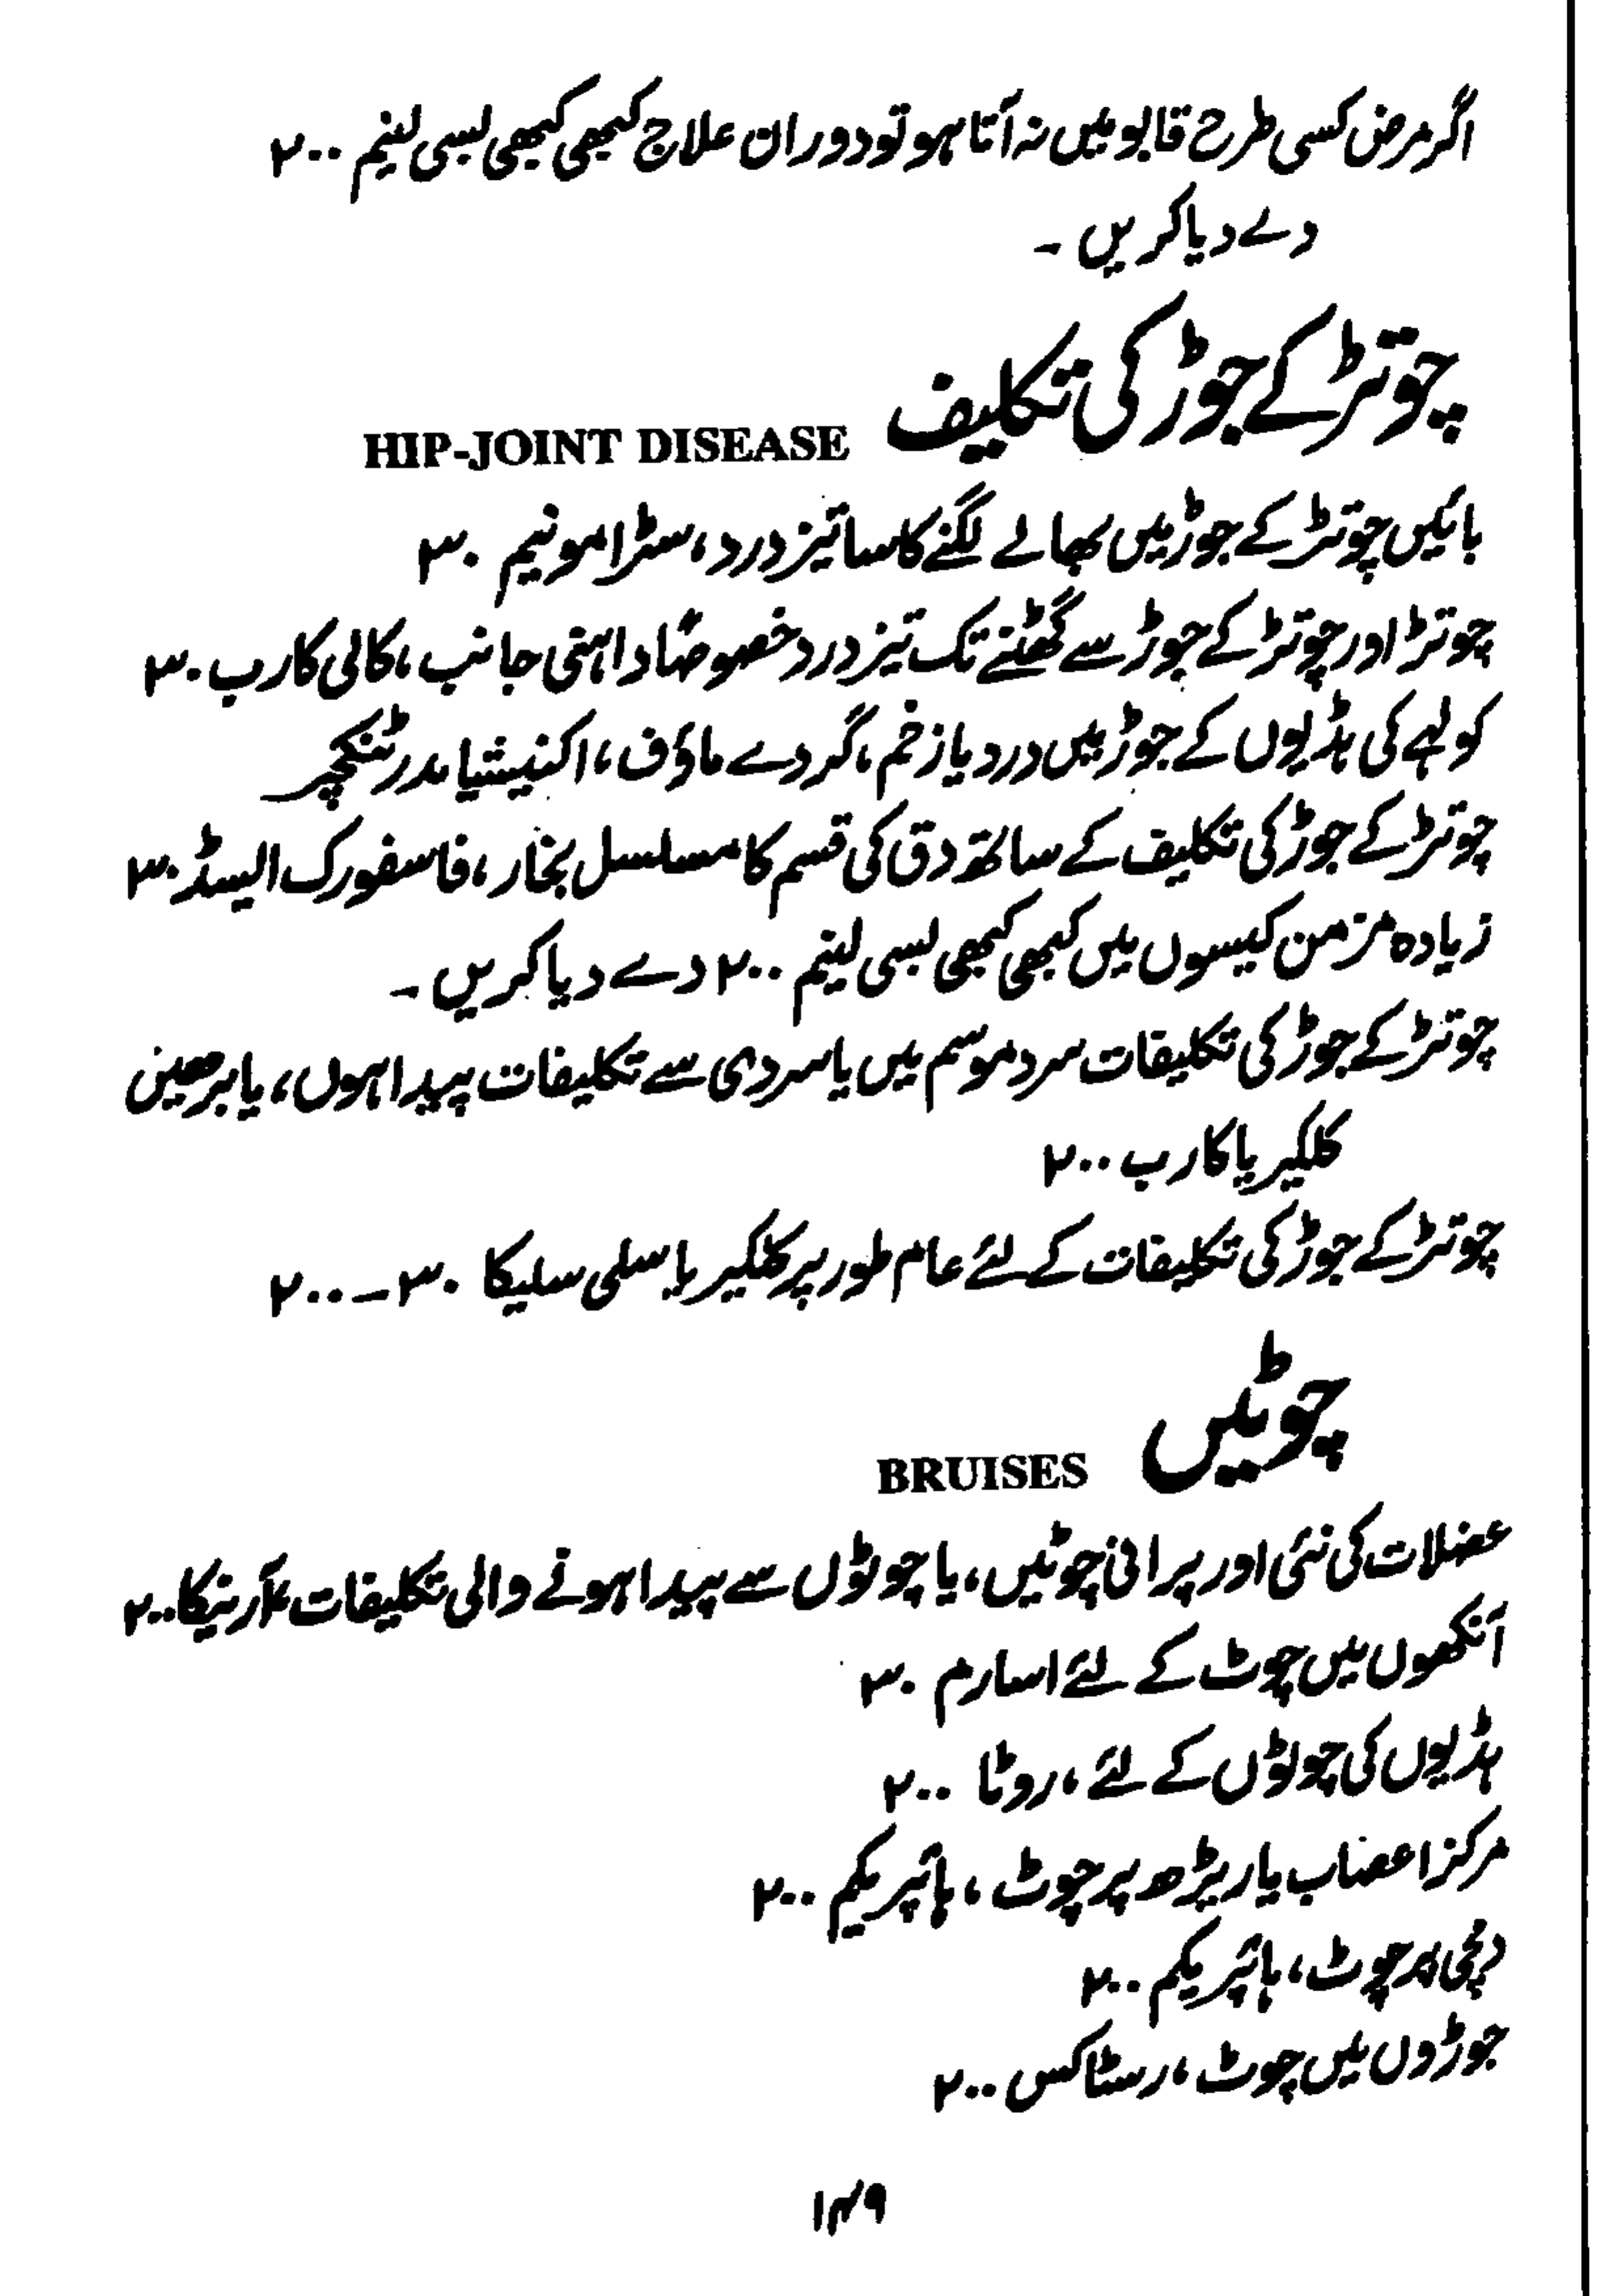 اگر مرض کسی طرح قابو میں نہ آتا ہو تو دوران علاج کبھی کبھی بسی لینم ۲۰۰
دے دیا کریں ۔
چوتڑ کے جوڑ کی تکلیف HIP-JOINT DISEASE
بائیں چوتڑ کے جوڑ میں بھالے لگنے کا سا تیز درد، سٹرامونیم ۳۰
چوتڑ اور چوتڑ کے جوڑ سے گھٹنے تک تیز درد خصوصاً داہنی جانب، کالی کارب ۳۰
کولہے کی ہڈیوں کے جوڑ میں درد یا زخم، گردے ماؤف، اکنیشیا مدر ٹنکچر
چوتڑ کے جوڑ کی تکلیف کے ساتھ دق کی قسم کا مسلسل بخار، فاسفورک ایسڈ ۳۰
زیادہ مزمن کیسوں میں کبھی کبھی بسی لینم ۲۰۰ دے دیا کریں ۔
چوتڑ کے جوڑ کی تکلیفات سرد موسم میں یا سردی سے تکلیفات پیدا ہوں، یا بڑھیں
کلکیریا کارب ۲۰۰
چوتڑ کے جوڑ کی تکلیفات کے لئے عام طور پر کلکیریا سلی سلیکا ۳۰ – ۲۰۰
چوٹیں BRUISES
عضلات کی نئی اور پرانی چوٹیں، یا چوٹوں سے پیدا ہونے والی تکلیفات، آرنیکا ۲۰۰
آنکھوں میں چوٹ کے لئے اسارم ۳۰
ہڈیوں کی چوٹوں کے لئے، روٹا ۲۰۰
مرکز اعصاب یا ریڑھ پر چوٹ، ہائپریکم ۲۰۰
دمچی پر چوٹ، ہائپریکم ۲۰۰
جوڑوں میں چوٹ، رسٹاکس ۲۰۰
۱۴۹